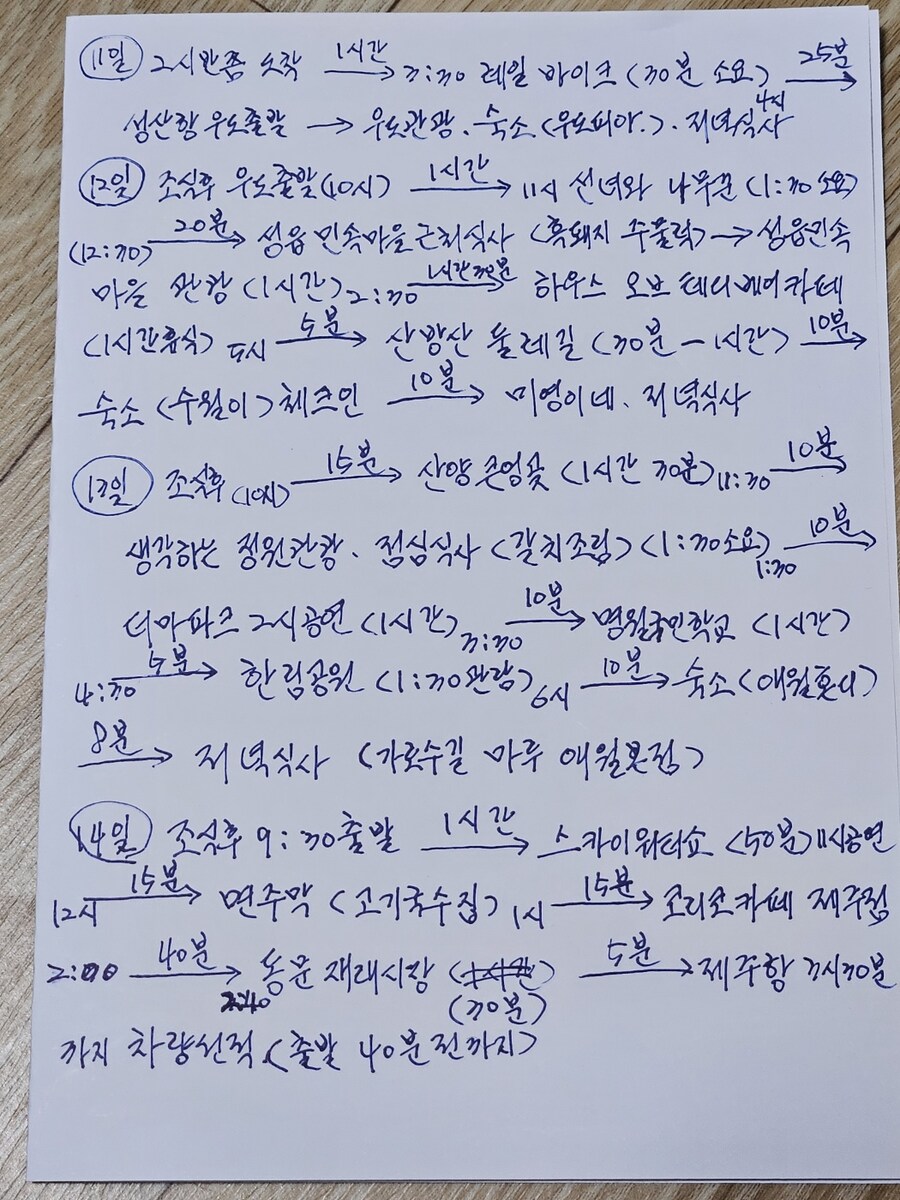 11일 2시반쯤 도착 1시간 3:30 레일 바이크 (30분 소요) 25분
성산항 우도출발 → 우도관광. 숙소 (우도피아.). 저녁식사 4시
12일 조식후 우도출발(10시) 1시간 11시 선녀와 나무꾼 (1:30 소요)
(12:30) 20분 성읍 민속마을 근처식사 (흑돼지 주물럭) → 성읍민속
마을 관광 (1시간) 2:30 1시간30분 하우스 오브 테디베어카페
(1시간휴식) 5시 5분 산방산 둘레길 (30분-1시간) 10분
숙소 (수월이) 체크인 10분 미영이네. 저녁식사
13일 조식후 (10시) 15분 산양큰엉곶 (1시간 30분) 11:30 10분
생각하는 정원관광. 점심식사 (갈치조림) (1:30소요) 1:30 10분
더마파크 2시공연 (1시간) 3:30 10분 명월국민학교 (1시간)
4:30 5분 한림공원 (1:30관람) 6시 10분 숙소 (애월혼디)
8분 저녁식사 (가로수길 마루 애월본점)
14일 조식후 9:30출발 1시간 스카이워터쇼 (50분) 11시공연
12시 15분 면주막 (고기국수집) 1시 15분 코리코카페 제주점
2:00 40분 2:40 동문재래시장 (30분) 5분 제주항 3시30분
까지 차량선적 (출발 40분전까지)